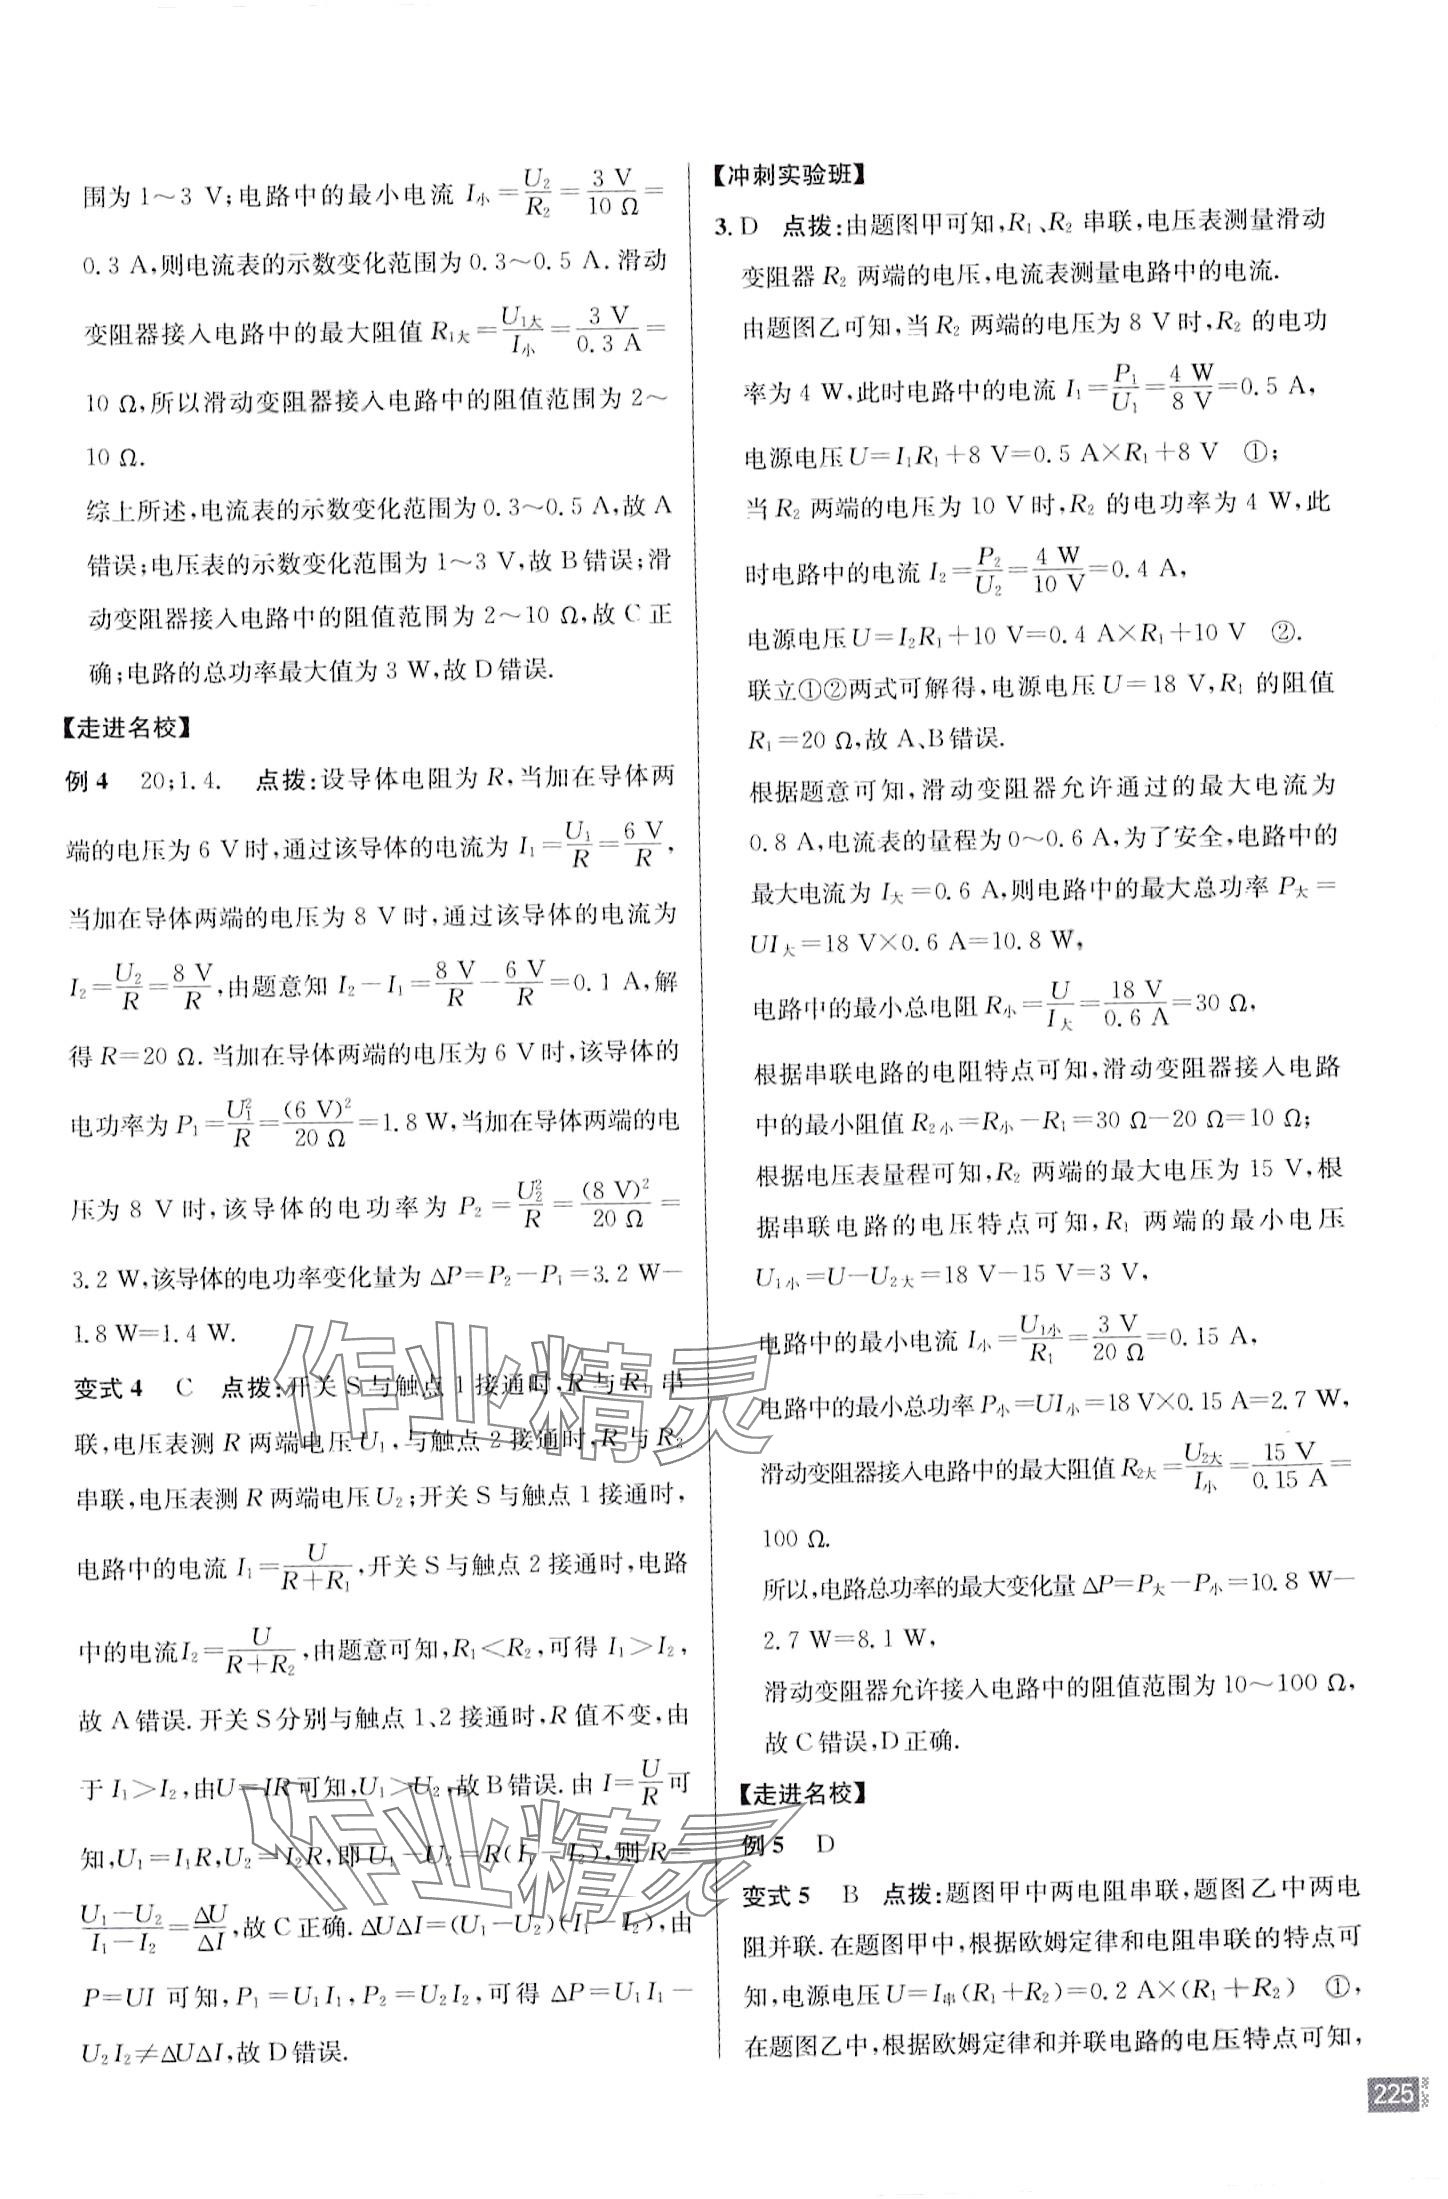 围为 1～3 V;电路中的最小电流 I小=U₂/R₂=3 V/10 Ω=
0.3 A,则电流表的示数变化范围为 0.3～0.5 A.滑动
变阻器接入电路中的最大阻值 R₁大=U₁大/I小=3 V/0.3 A=
10 Ω,所以滑动变阻器接入电路中的阻值范围为 2～
10 Ω.
综上所述,电流表的示数变化范围为 0.3～0.5 A,故 A
错误;电压表的示数变化范围为 1～3 V,故 B 错误;滑
动变阻器接入电路中的阻值范围为 2～10 Ω,故 C 正
确;电路的总功率最大值为 3 W,故 D 错误.
【走进名校】
例 4 20;1.4. 点拨:设导体电阻为 R,当加在导体两
端的电压为 6 V 时,通过该导体的电流为 I₁=U₁/R=6 V/R,
当加在导体两端的电压为 8 V 时,通过该导体的电流为
I₂=U₂/R=8 V/R,由题意知 I₂-I₁=8 V/R-6 V/R=0.1 A,解
得 R=20 Ω.当加在导体两端的电压为 6 V 时,该导体的
电功率为 P₁=U₁²/R=(6 V)²/20 Ω=1.8 W,当加在导体两端的电
压为 8 V 时,该导体的电功率为 P₂=U₂²/R=(8 V)²/20 Ω=
3.2 W,该导体的电功率变化量为 ΔP=P₂-P₁=3.2 W-
1.8 W=1.4 W.
变式 4 C 点拨:开关 S 与触点 1 接通时,R 与 R₁ 串
联,电压表测 R 两端电压 U₁,与触点 2 接通时,R 与 R₂
串联,电压表测 R 两端电压 U₂;开关 S 与触点 1 接通时,
电路中的电流 I₁=U/(R+R₁),开关 S 与触点 2 接通时,电路
中的电流 I₂=U/(R+R₂),由题意可知,R₁<R₂,可得 I₁>I₂,
故 A 错误.开关 S 分别与触点 1、2 接通时,R 值不变,由
于 I₁>I₂,由U=IR 可知,U₁>U₂,故 B 错误.由 I=U/R可
知,U₁=I₁R,U₂=I₂R,即 U₁-U₂=R(I₁-I₂),则 R=
(U₁-U₂)/(I₁-I₂)=ΔU/ΔI,故 C 正确.ΔUΔI=(U₁-U₂)(I₁-I₂),由
P=UI 可知,P₁=U₁I₁,P₂=U₂I₂,可得 ΔP=U₁I₁-
U₂I₂≠ΔUΔI,故 D 错误.
【冲刺实验班】
3. D 点拨:由题图甲可知,R₁、R₂ 串联,电压表测量滑动
变阻器 R₂ 两端的电压,电流表测量电路中的电流.
由题图乙可知,当 R₂ 两端的电压为 8 V 时,R₂ 的电功
率为 4 W,此时电路中的电流 I₁=P₁/U₁=4 W/8 V=0.5 A,
电源电压 U=I₁R₁+8 V=0.5 A×R₁+8 V ①;
当 R₂ 两端的电压为 10 V 时,R₂ 的电功率为 4 W,此
时电路中的电流 I₂=P₂/U₂=4 W/10 V=0.4 A,
电源电压 U=I₂R₁+10 V=0.4 A×R₁+10 V ②.
联立①②两式可解得,电源电压 U=18 V,R₁ 的阻值
R₁=20 Ω,故 A、B 错误.
根据题意可知,滑动变阻器允许通过的最大电流为
0.8 A,电流表的量程为 0～0.6 A,为了安全,电路中的
最大电流为 I大=0.6 A,则电路中的最大总功率 P大=
UI大=18 V×0.6 A=10.8 W,
电路中的最小总电阻 R小=U/I大=18 V/0.6 A=30 Ω,
根据串联电路的电阻特点可知,滑动变阻器接入电路
中的最小阻值 R₂小=R小-R₁=30 Ω-20 Ω=10 Ω;
根据电压表量程可知,R₂ 两端的最大电压为 15 V,根
据串联电路的电压特点可知,R₁ 两端的最小电压
U₁小=U-U₂大=18 V-15 V=3 V,
电路中的最小电流 I小=U₁小/R₁=3 V/20 Ω=0.15 A,
电路中的最小总功率 P小=UI小=18 V×0.15 A=2.7 W,
滑动变阻器接入电路中的最大阻值 R₂大=U₂大/I小=15 V/0.15 A=
100 Ω.
所以,电路总功率的最大变化量 ΔP=P大-P小=10.8 W-
2.7 W=8.1 W,
滑动变阻器允许接入电路中的阻值范围为 10～100 Ω,
故 C 错误,D 正确.
【走进名校】
例 5 D
变式 5 B 点拨:题图甲中两电阻串联,题图乙中两电
阻并联.在题图甲中,根据欧姆定律和电阻串联的特点可
知,电源电压 U=I串(R₁+R₂)=0.2 A×(R₁+R₂) ①,
在题图乙中,根据欧姆定律和并联电路的电压特点可知,
225
作业精灵
作业精灵